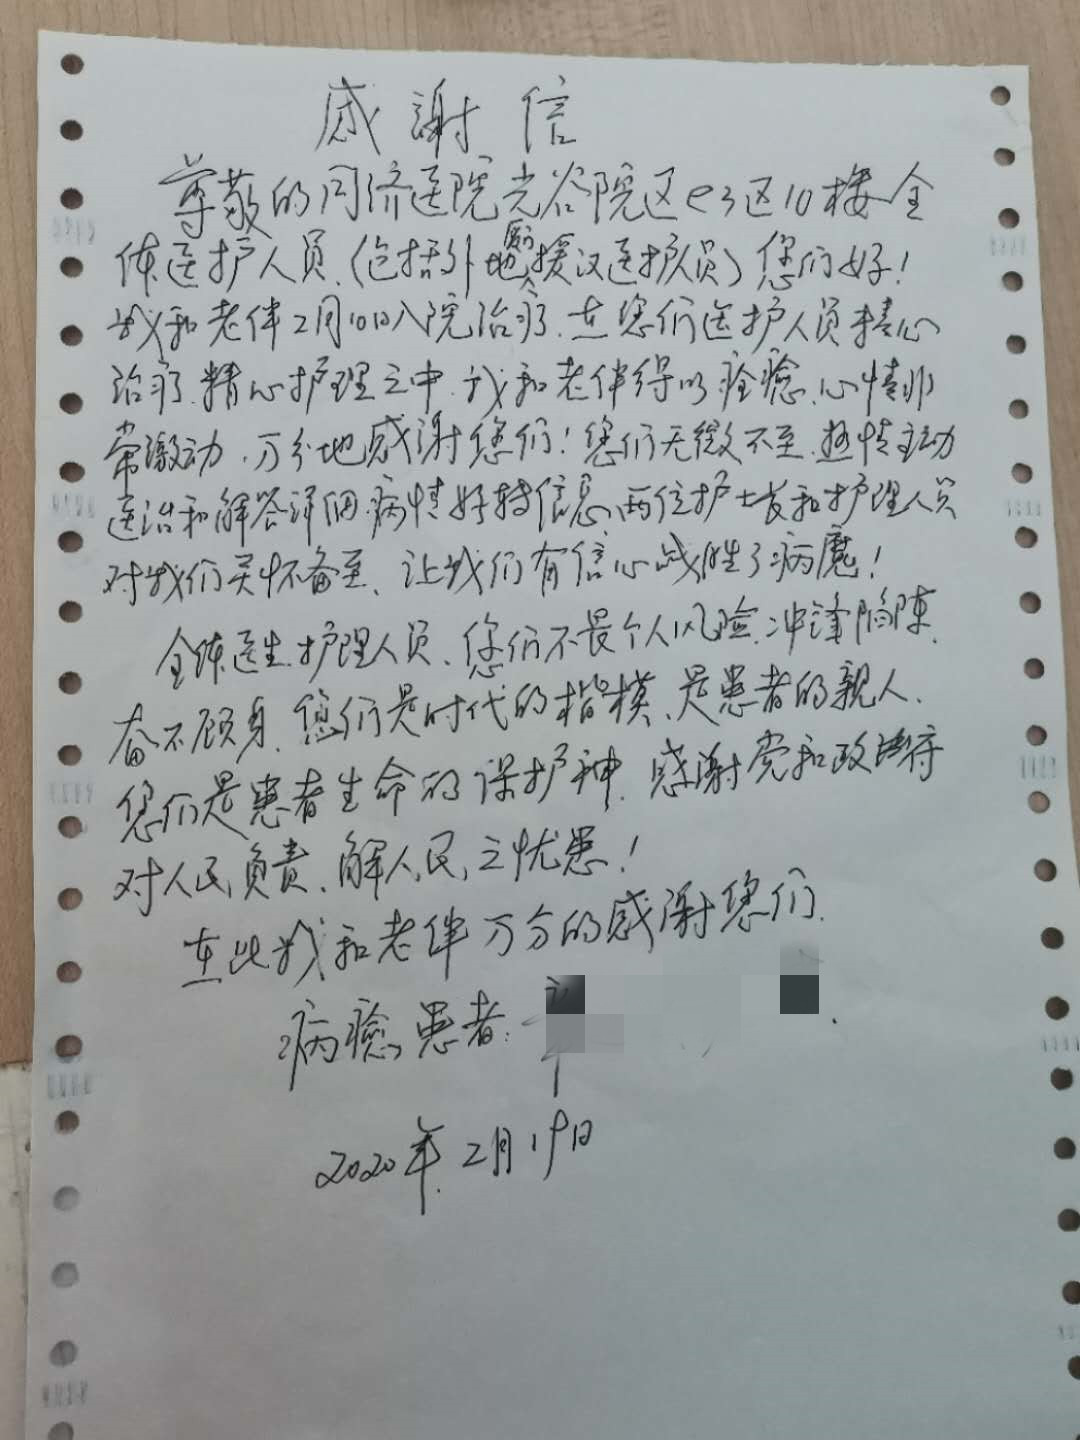 感谢信
尊敬的同济医院光谷院区e3区10楼全
体医护人员、(包括外地厦门援汉医护人员)您们好!
我和老伴2月10日入院治疗.在您们医护人员精心
治疗.精心护理之中.我和老伴得以痊愈.心情非
常激动.万分地感谢您们!您们无微不至.热情主动
医治和解答详细病情好转信息.两位护士长和护理人员
对我们关怀备至、让我们有信心战胜了病魔!
全体医生.护理人员、您们不畏个人风险.冲锋陷阵.
奋不顾身.您们是时代的楷模、是患者的亲人.
您们是患者生命的保护神.感谢党和政府
对人民负责、解人民之忧患!
在此我和老伴万分的感谢您们.
病愈患者:
2020年.2月19日